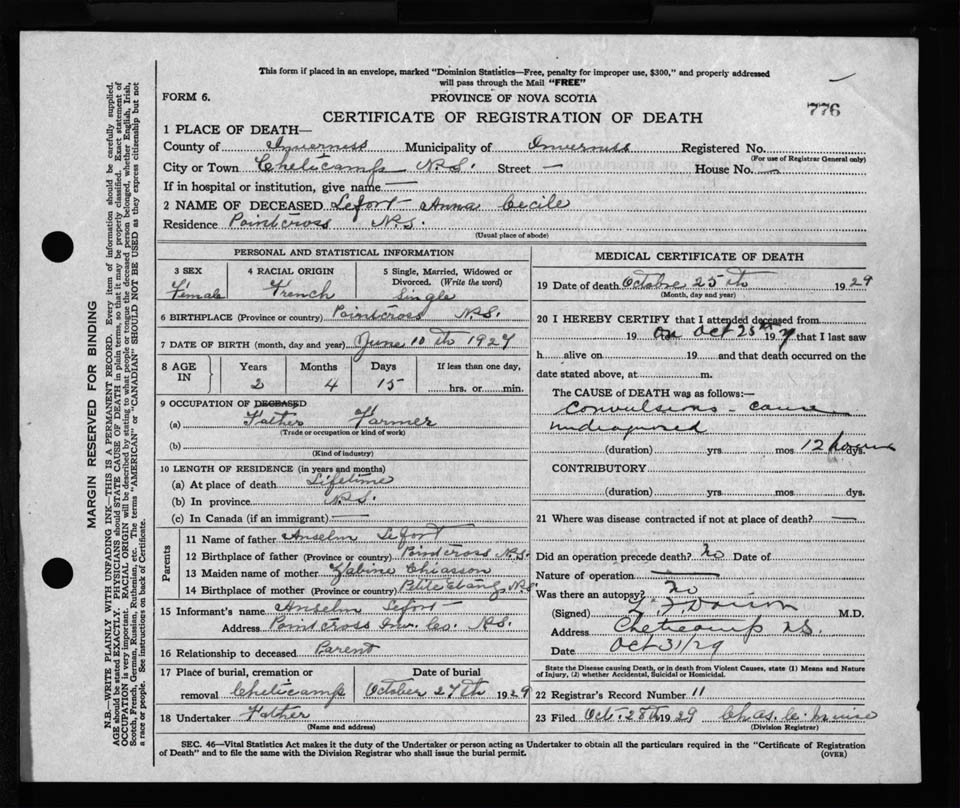 This form if placed in an envelope, marked "Dominion Statistics—Free, penalty for improper use, $300," and properly addressed
will pass through the Mail "FREE"
FORM 6.
PROVINCE OF NOVA SCOTIA
776
CERTIFICATE OF REGISTRATION OF DEATH
1 PLACE OF DEATH—
County of Inverness Municipality of Inverness Registered No.
(For use of Registrar General only)
City or Town Cheticamp N.S. Street — House No. —
If in hospital or institution, give name —
2 NAME OF DECEASED Lefort Anna Cecile
Residence Pointcross N.S.
(Usual place of abode)
PERSONAL AND STATISTICAL INFORMATION
3 SEX
Female
4 RACIAL ORIGIN
French
5 Single, Married, Widowed or
Divorced. (Write the word)
Single
6 BIRTHPLACE (Province or country) Pointcross N.S.
7 DATE OF BIRTH (month, day and year) June 10th 1927
8 AGE
IN
Years
2
Months
4
Days
15
If less than one day,
hrs. or min.
9 OCCUPATION OF DECEASED
(a) Father of Farmer
(Trade or occupation or kind of work)
(b)
(Kind of industry)
10 LENGTH OF RESIDENCE (in years and months)
(a) At place of death Lifetime
(b) In province N.S.
(c) In Canada (if an immigrant) —
Parents
11 Name of father Anselm Lefort
12 Birthplace of father (Province or country) Pointcross N.S.
13 Maiden name of mother Chiasson
14 Birthplace of mother (Province or country) N.S
15 Informant's name Anselm Lefort
Address Pointcross Inv. Co. N.S.
16 Relationship to deceased Parent
17 Place of burial, cremation or
removal Cheticamp
Date of burial
October 27th 1929
18 Undertaker Father
(Name and address)
MEDICAL CERTIFICATE OF DEATH
19 Date of death October 25th 1929
(Month, day and year)
20 I HEREBY CERTIFY that I attended deceased from
19 on Oct 25th 19 that I last saw
h alive on 19 and that death occurred on the
date stated above, at m.
The CAUSE OF DEATH was as follows:—
Convulsions - cause
undiagnosed
(duration) yrs. mos. 12 hours dys.
CONTRIBUTORY
(duration) yrs. mos. dys.
21 Where was disease contracted if not at place of death? —
Did an operation precede death? No Date of
Nature of operation —
Was there an autopsy? No
(Signed) M.D.
Address Cheticamp N.S.
Date Oct 31/29
State the Disease causing Death, or in death from Violent Causes, state (1) Means and Nature
of Injury, (2) whether Accidental, Suicidal or Homicidal.
22 Registrar's Record Number 11
23 Filed Oct. 28th 1929 Chas. C.
(Division Registrar)
SEC. 46—Vital Statistics Act makes it the duty of the Undertaker or person acting as Undertaker to obtain all the particulars required in the "Certificate of Registration
of Death" and to file the same with the Division Registrar who shall issue the burial permit.
(OVER)
MARGIN RESERVED FOR BINDING
N.B.—WRITE PLAINLY WITH UNFADING INK—THIS IS A PERMANENT RECORD. Every item of information should be carefully supplied.
AGE should be stated EXACTLY. PHYSICIANS should STATE CAUSE OF DEATH in plain terms, so that it may be properly classified. Exact statement of
OCCUPATION is very important. RACIAL ORIGIN will be described by stating to what people or tongue the deceased person belonged, whether English, Irish,
Scotch, French, German, Russian, Ruthenian, etc. The terms "AMERICAN" or "CANADIAN" SHOULD NOT BE USED as they express citizenship but not
a race or people. See instructions on back of Certificate.